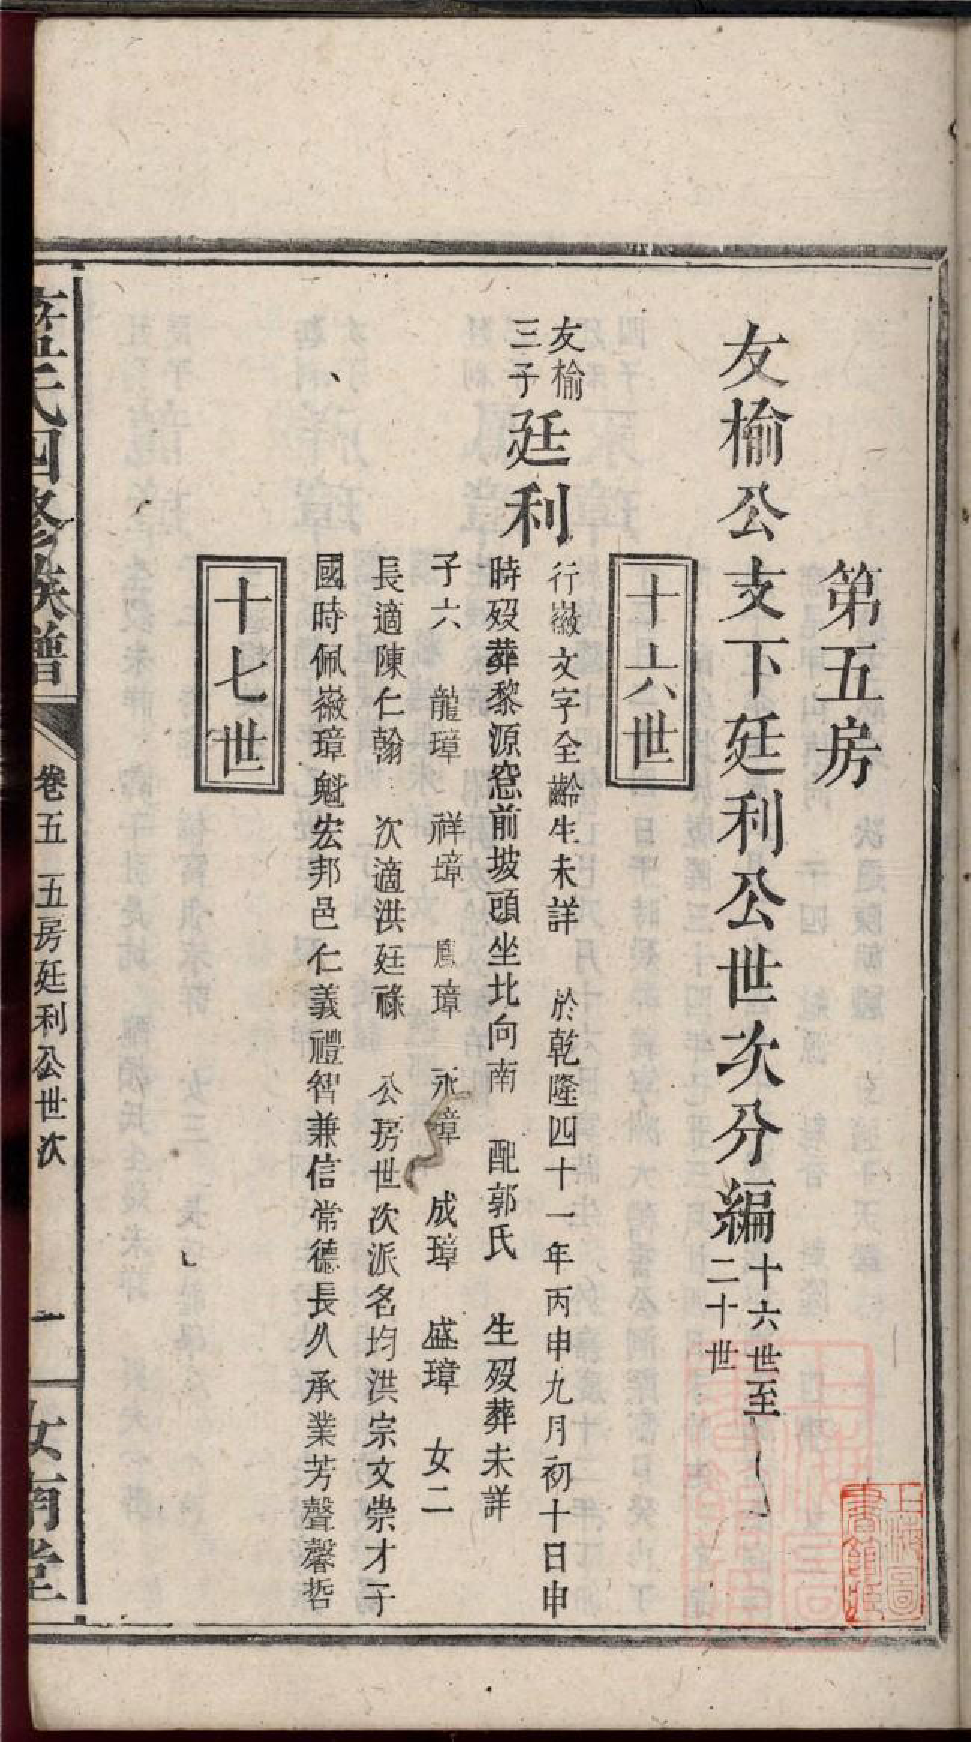 第五房
友榆公支下廷利公世次分編十六世至
二十世
十六世
友榆
三子
廷利
行嶶文字全齡生未詳　於乾隆四十一年丙申九月初十日申
時歿葬黎源窓前坡頭坐北向南　配郭氏　生歿葬未詳
子六　龍璋　祥璋　鳳璋　永璋　成璋　盛璋　女二
長適陳仁翰　次適洪廷祿　公房世次派名均洪宗文崇才子
國時佩嶶璋魁宏邦邑仁義禮智兼信常德長久承業芳聲馨哲
十七世
氏四修族譜
卷五　五房廷利公世次
一
汝南堂
上海圖
書館藏